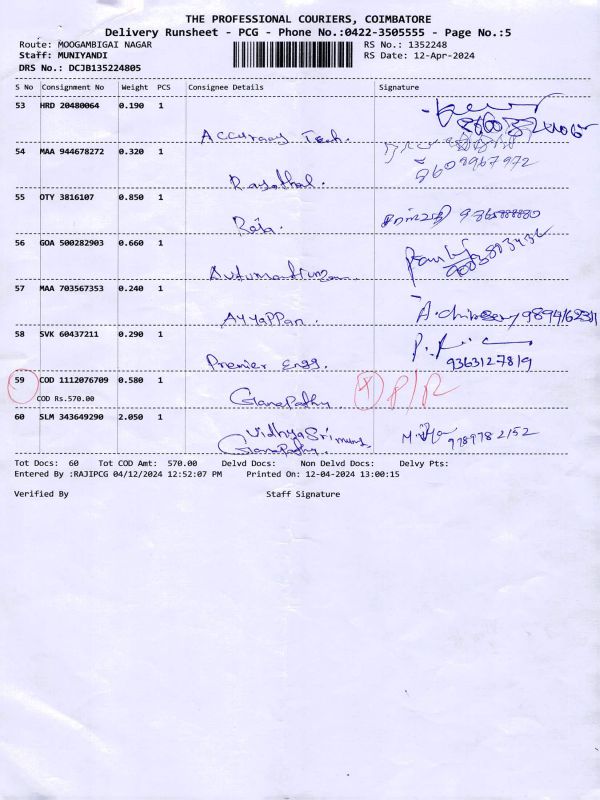 THE PROFESSIONAL COURIERS, COIMBATORE
Delivery Runsheet - PCG - Phone No.:0422-3505555 - Page No.:5
Route: MOOGAMBIGAI NAGAR RS No.: 1352248
Staff: MUNIYANDI RS Date: 12-Apr-2024
DRS No.: DCJB135224805
S No Consignment No Weight PCS Consignee Details Signature
53 HRD 20480064 0.190 1
Accuracy Tech.
54 MAA 944678272 0.320 1
8608967972
Rasathal.
55 OTY 3816107 0.850 1
Raja.
56 GOA 500282903 0.660 1
57 MAA 703567353 0.240 1
Ayyappan.
58 SVK 60437211 0.290 1
Premier Engg. 9363127819
59 COD 1112076709 0.580 1
COD Rs.570.00 Ganapathy
60 SLM 343649290 2.050 1
Vidhya 9789782152
Ganapathy.
Tot Docs: 60 Tot COD Amt: 570.00 Delvd Docs: Non Delvd Docs: Delvy Pts:
Entered By :RAJIPCG 04/12/2024 12:52:07 PM Printed On: 12-04-2024 13:00:15
Verified By Staff Signature